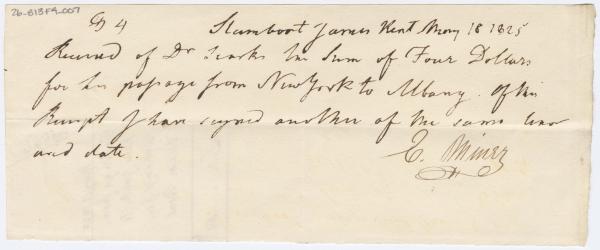 26-813F9-007
4 Steamboat James Kent May 18 1825
Received of Dr the Sum of Four Dollars
for his passage from New York to Albany. Of this
Receipt I have signed another of the same tenor
and date.
E. Miner